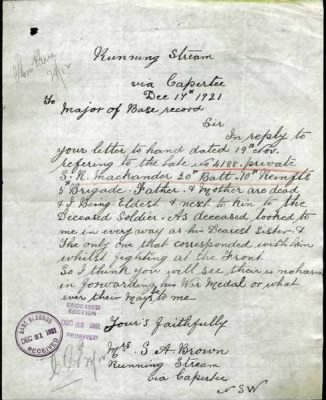 Running Stream
via Capertee
Dec 14th 1921
To Major of Base record
Sir
In reply to
your letter to hand dated 19th Nov.
refering to the late No 4188. private
S. R. Machander 20th Batt. 10th Reinfts
5th Brigade. Father & Mother are dead
& I Being Eldest & next to kin to the
Deceased Soldier. As deceased looked to
me in every way as his Dearest Sister &
The only one that corresponded with him
whilst fighting at the Front
So I think you will see their is no harm
in forwarding his War Medal or what
ever their May be to me
Your's faithfully
Mrs S. A. Brown
Running Stream
via Capertee
NSW
BASE RECORDS
DEC 21 1921
RECEIVED
DECEASED
SECTION
DEC 1921
RECEIVED